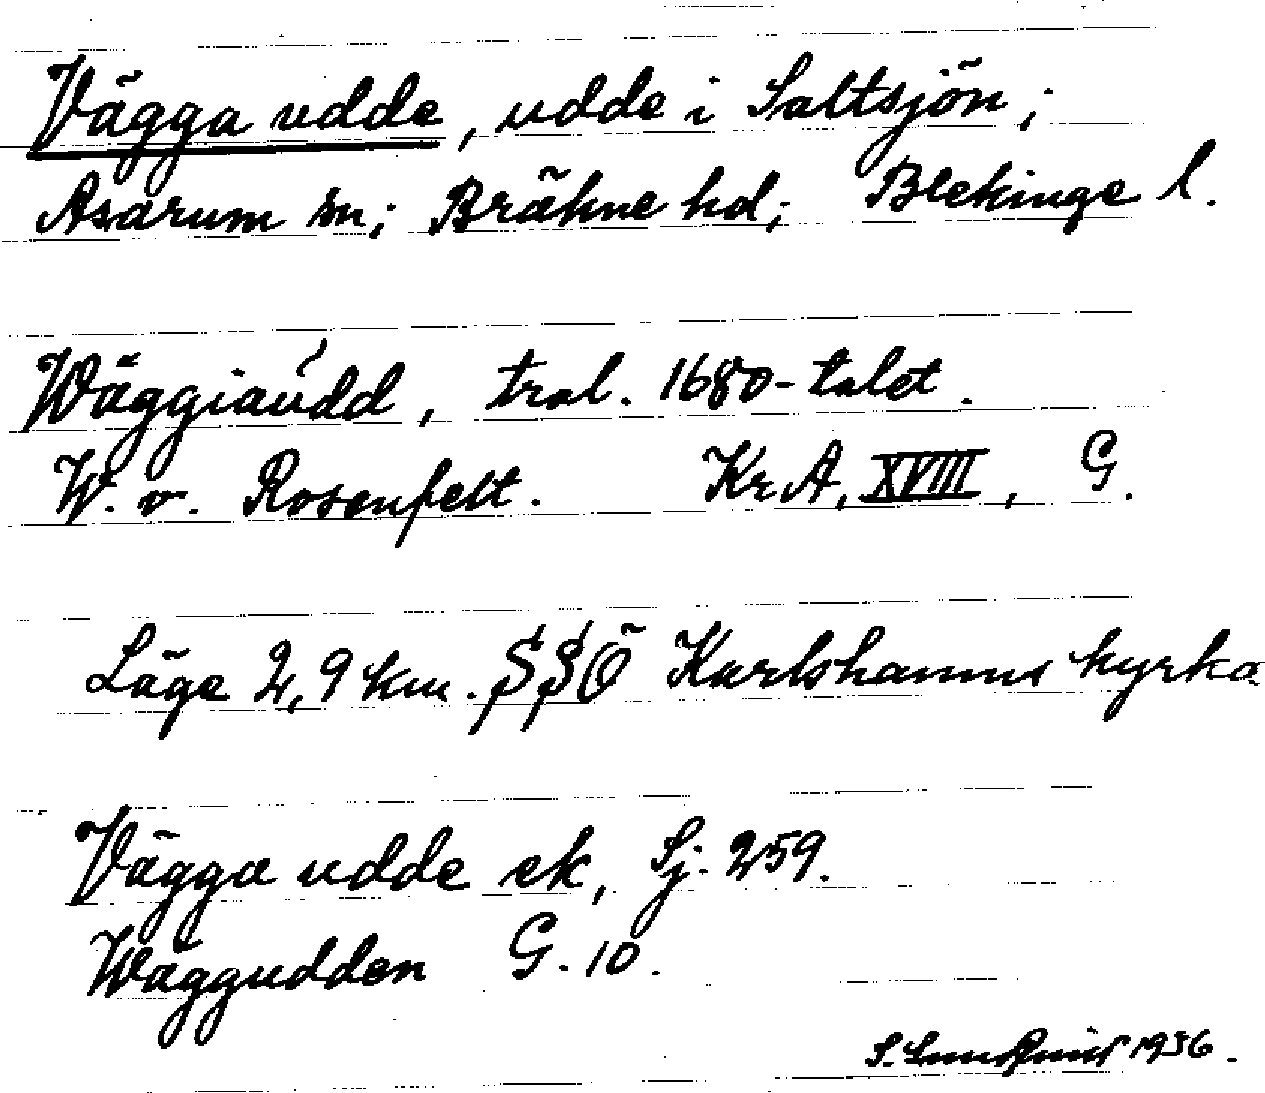 Vägga udde, udde i Saltsjön;
Asarum sn; Bräkne hd; Blekinge l.
Wäggiaúdd, trol. 1680-talet.
W. v. Rosenfelt. KrA, XVIII, G.
Läge 2,9 km. SSÖ Karlshamns kyrka
Vägga udde ek, Sj. 259.
Väggudden G. 10.
S. Lundquist 1936.